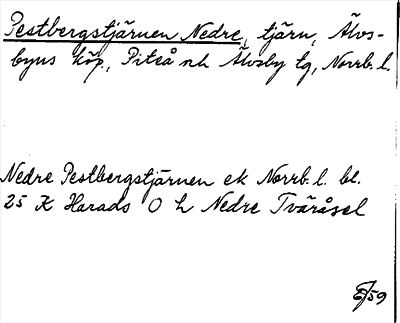 Pestbergstjärnen Nedre, tjärn, Älvs-
byns köp., Piteå nh Älvsby tg, Norrb. l.
Nedre Pestbergstjärnen ek Norrb. l. bl.
25 K Harads O h Nedre Tväråsel
/59